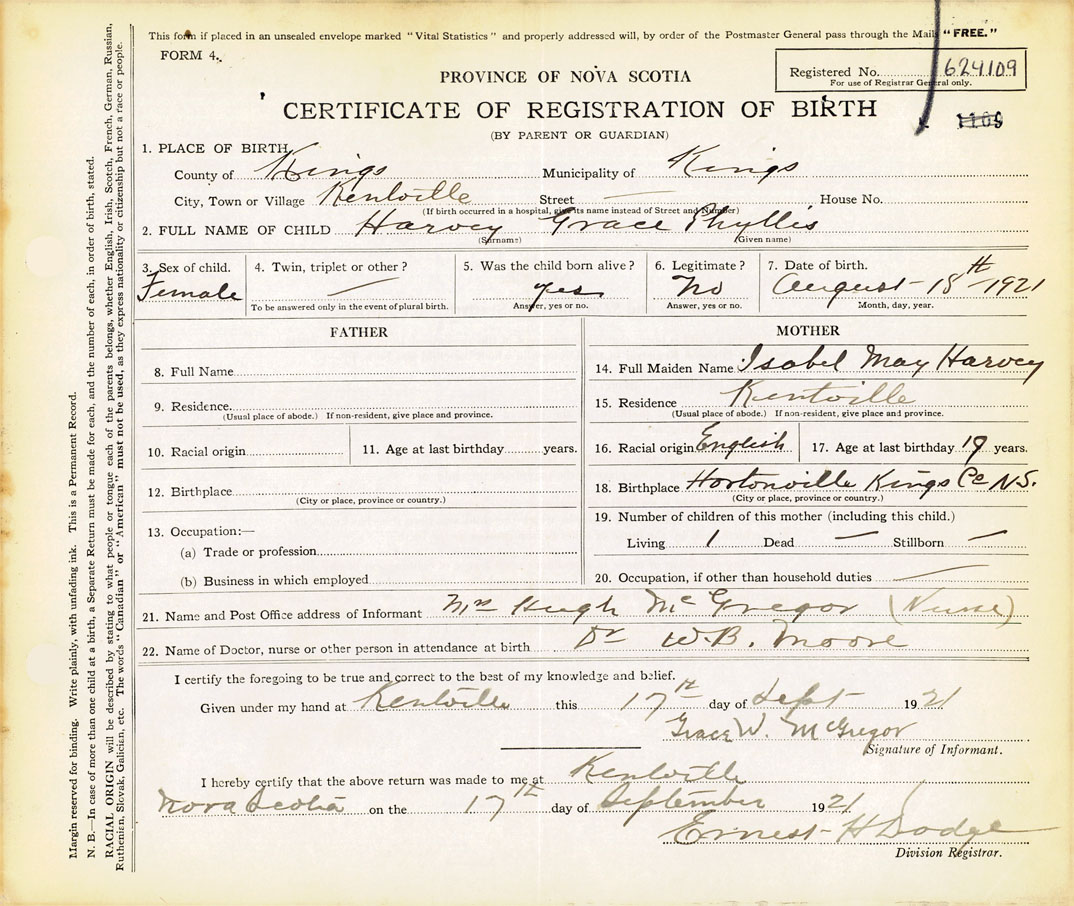 This form if placed in an unsealed envelope marked "Vital Statistics" and properly addressed will, by order of the Postmaster General pass through the Mails "FREE."
FORM 4.
PROVINCE OF NOVA SCOTIA
Registered No. 624109
For use of Registrar General only.
CERTIFICATE OF REGISTRATION OF BIRTH
1109
(BY PARENT OR GUARDIAN)
1. PLACE OF BIRTH,
County of Kings Municipality of Kings
City, Town or Village Kentville Street — House No.
(If birth occurred in a hospital, give its name instead of Street and Number)
2. FULL NAME OF CHILD Harvey Grace Phyllis
(Surname) (Given name)
3. Sex of child. 4. Twin, triplet or other? 5. Was the child born alive? 6. Legitimate? 7. Date of birth.
Female — yes No August 18th 1921
To be answered only in the event of plural birth. Answer, yes or no. Answer, yes or no. Month, day, year.
FATHER
8. Full Name
9. Residence
(Usual place of abode.) If non-resident, give place and province.
10. Racial origin 11. Age at last birthday years.
12. Birthplace
(City or place, province or country.)
13. Occupation:—
(a) Trade or profession
(b) Business in which employed
MOTHER
14. Full Maiden Name Isabel May Harvey
15. Residence Kentville
(Usual place of abode.) If non-resident, give place and province.
16. Racial origin English 17. Age at last birthday 19 years.
18. Birthplace Hortonville Kings Co N.S.
(City or place, province or country.)
19. Number of children of this mother (including this child.)
Living 1 Dead — Stillborn —
20. Occupation, if other than household duties —
21. Name and Post Office address of Informant Mrs Hugh McGregor (Nurse)
22. Name of Doctor, nurse or other person in attendance at birth Dr W.B. Moore
I certify the foregoing to be true and correct to the best of my knowledge and belief.
Given under my hand at Kentville this 17th day of Sept 1921
Grace W. McGregor
Signature of Informant.
I hereby certify that the above return was made to me at Kentville
Nova Scotia on the 17th day of September 1921
Ernest H Dodge
Division Registrar.
Margin reserved for binding. Write plainly, with unfading ink. This is a Permanent Record.
N. B.—In case of more than one child at a birth, a Separate Return must be made for each, and the number of each, in order of birth, stated.
RACIAL ORIGIN will be described by stating to what people or tongue each of the parents belongs, whether English, Irish, Scotch, French, German, Russian,
Ruthenian, Slovak, Galician, etc. The words "Canadian" or "American" must not be used, as they express nationality or citizenship but not a race or people.